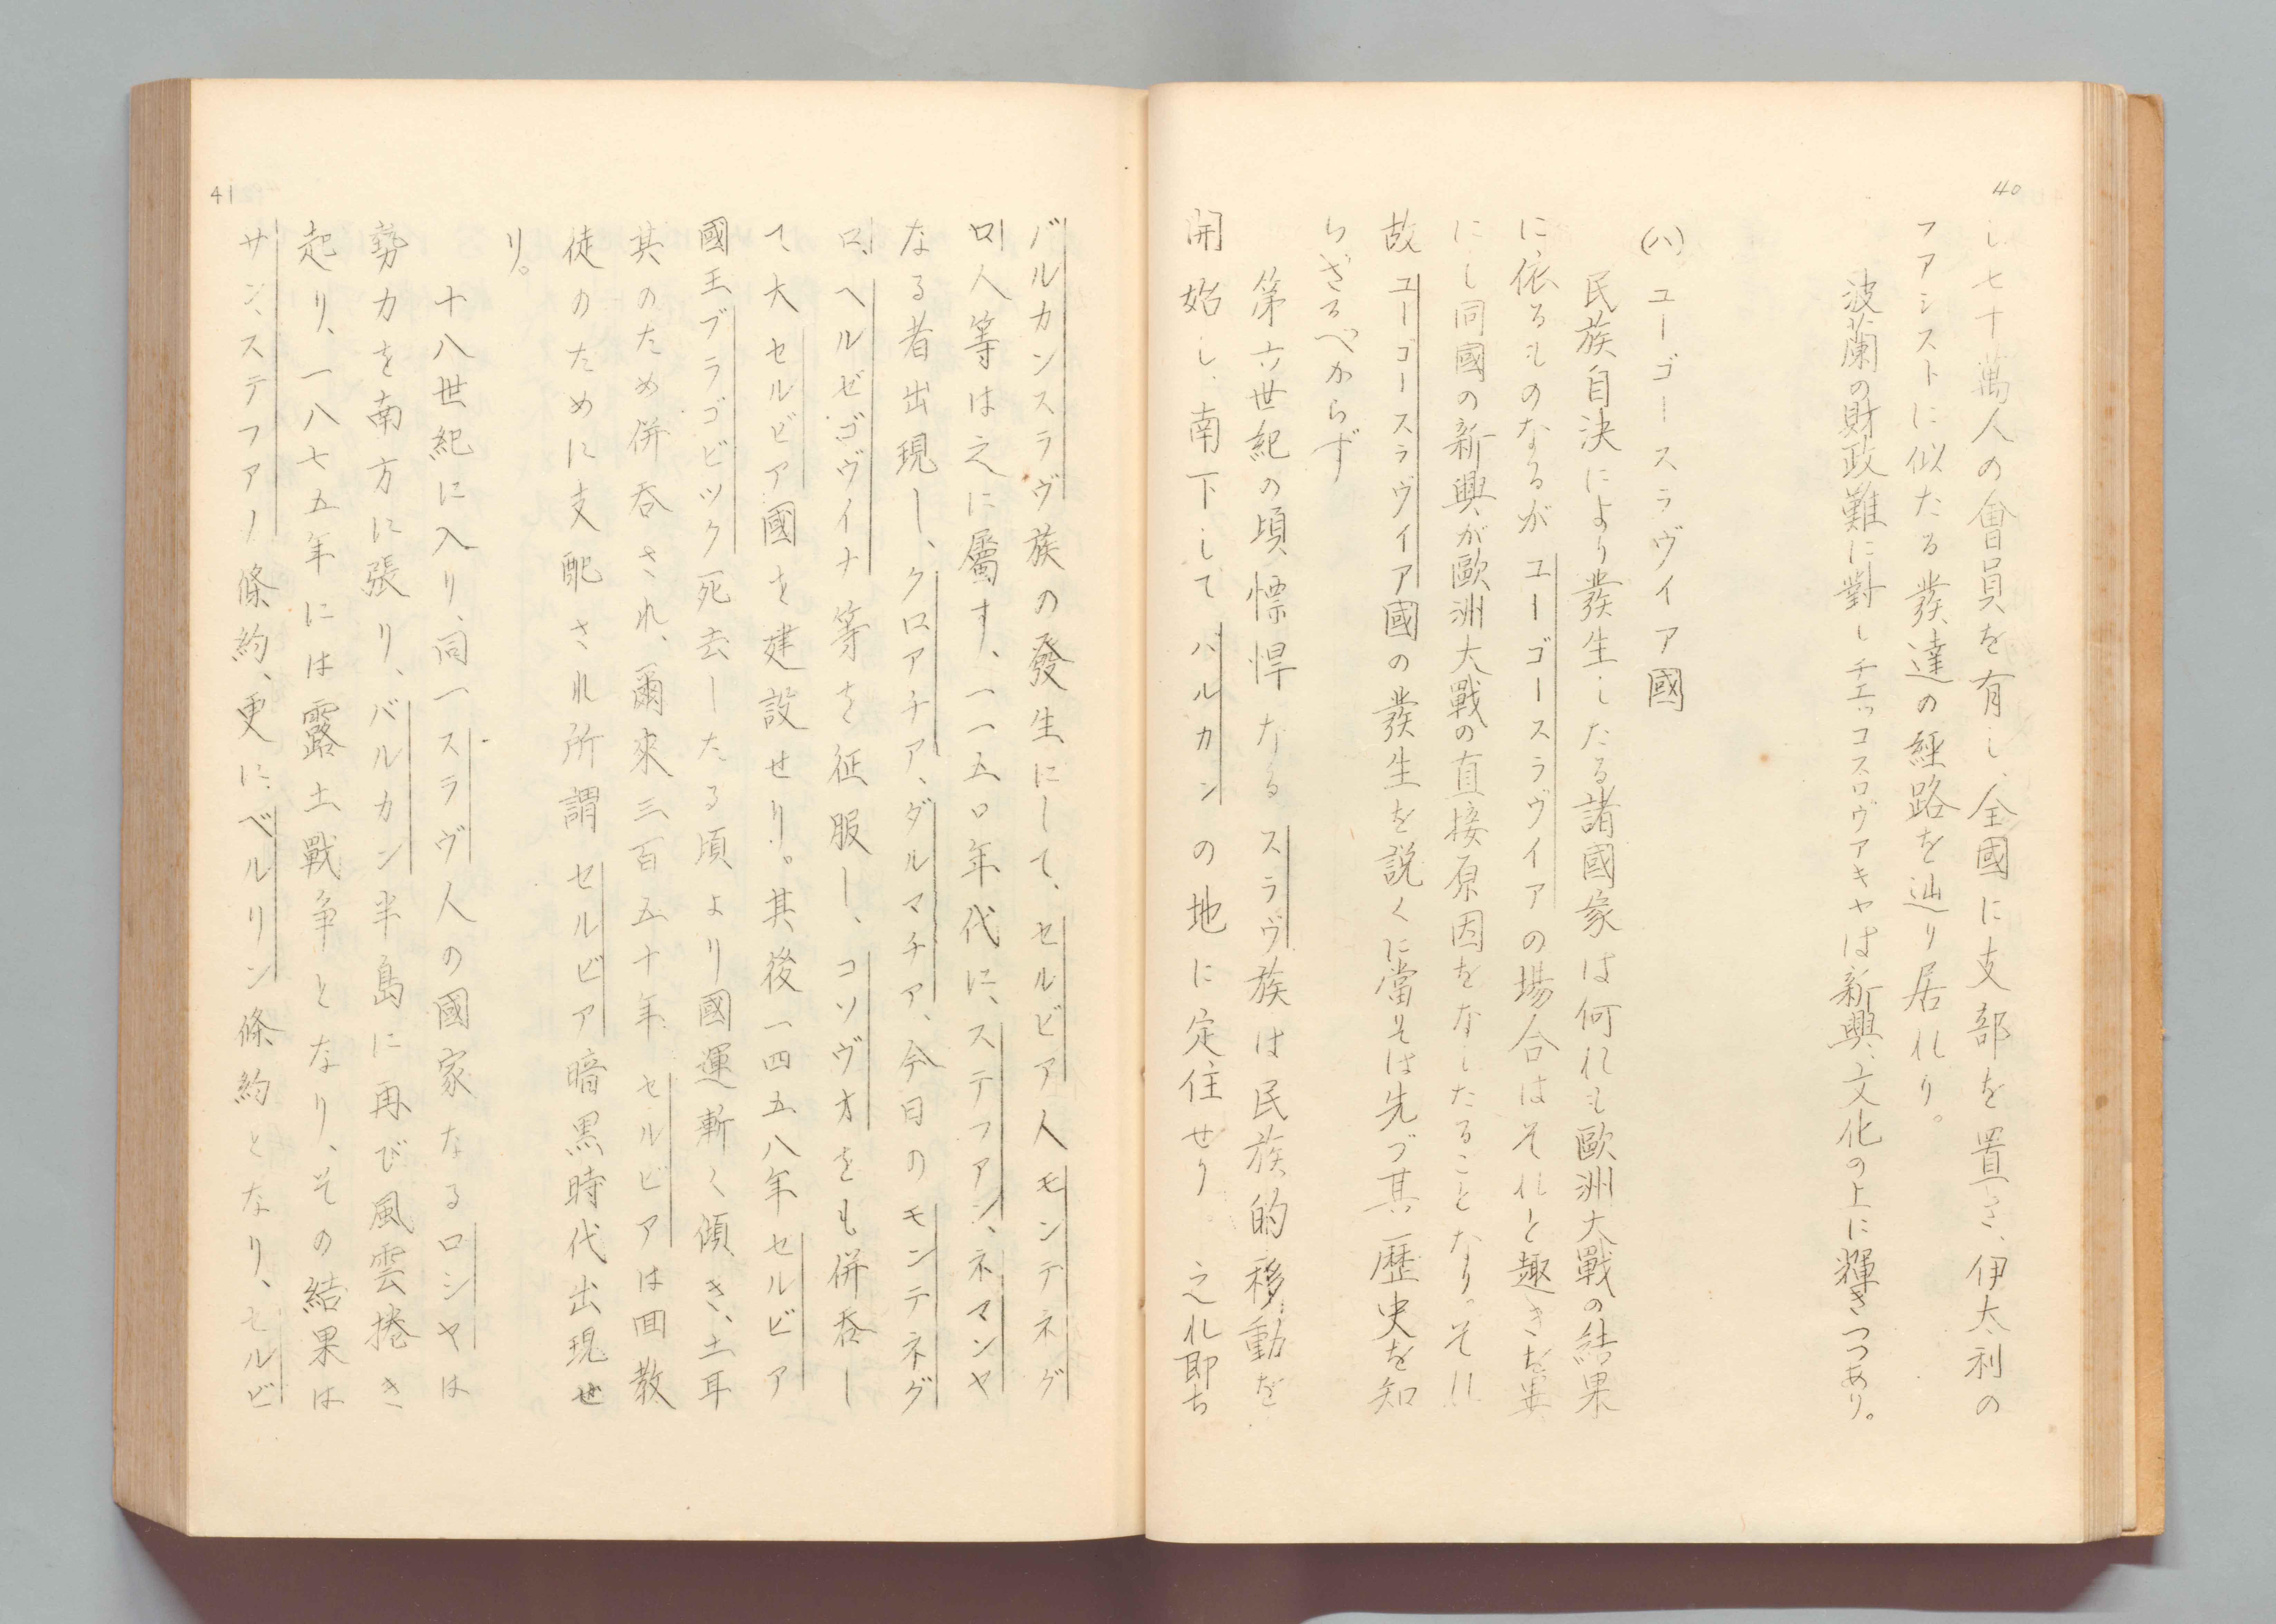 40
し七十萬人の會員を有し、全國に支部を置き、伊太利の
フアシストに似たる発達の經路を辿り居れり。
波蘭の財政難に對しチエッコスロヴアキヤは新興、文化の上に輝きつつあり。
(ハ)ユーゴースラヴイア國
民族自決により發生したる諸國家は何れも歐洲大戰の結果
に依るものなるがユーゴースラヴイアの場合はそれと趣きを異
にし同國の新興が歐洲大戰の直接原因をなしたることなり。それ
故ユーゴースラヴイア國の發生を説くに當そは先づ其歴史を知
らざるべからず
第六世紀の頃慓悍なるスラヴ族は民族的移動を
開始し、南下してバルカンの地に定住せり。之れ即ち
バルカンスラヴ族の發生にして、セルビア人モンテネグ
ロ人等は之に屬す、一一五〇年代に、ステフアン、ネマンヤ
なる者出現し、クロアチア、ダルマチア、今日のモンテネグ
ロ、ヘルゼゴヴイナ等を征服し、コソヴオをも併呑し
て、大セルビア國を建設せり。其後一四五八年セルビア
國王ブラゴビツク死去したる頃より國運漸く傾き、土耳
其のため併呑され、爾來三百五十年セルビアは回教
徒のために支配され所謂セルビア暗黒時代出現せ
り。
十八世紀に入り、同一スラヴ人の國家なるロシヤは
勢力を南方に張り、バルカン半島に再び風雲捲き
起り、一八七五年には露土戰争となり、その結果は
サン、ステフアノ條約、更に、ベルリン條約となり、セルビ
41